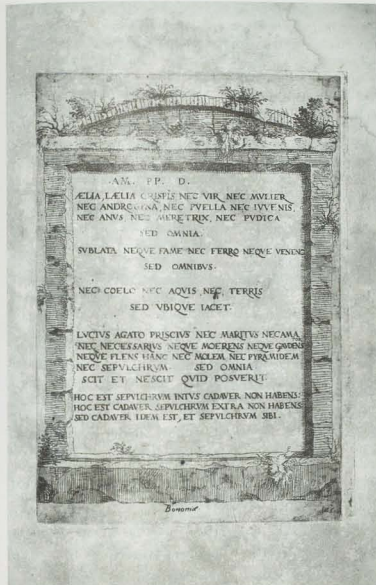 AM. PP. D.
ÆLIA LÆLIA CRISPIS NEC VIR NEC MVLIER
NEC ANDROGYNA NEC PVELLA NEC IVVENIS,
NEC ANVS NEC MERETRIX, NEC PVDICA
SED OMNIA.
SVBLATA NEQVE FAME NEC FERRO NEQVE VENENO
SED OMNIBVS.
NEC COELO NEC AQVIS NEC TERRIS
SED VBIQVE IACET.
LVCIVS AGATO PRISCIVS NEC MARITVS NEC AMA
NEC NECESSARIVS NEQVE MOERENS NEQVE GAVDENS
NEQVE FLENS HANC NEC MOLEM NEC PYRAMIDEM
NEC SEPVLCHRVM. SED OMNIA
SCIT ET NESCIT QVID POSVERIT.
HOC EST SEPVLCHRVM INTVS CADAVER NON HABENS
HOC EST CADAVER SEPVLCHRVM EXTRA NON HABENS
SED CADAVER IDEM EST, ET SEPVLCHRVM SIBI.
Bononiæ